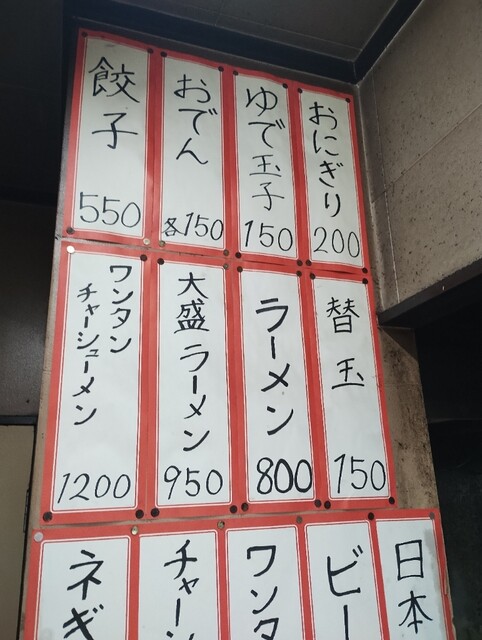 おにぎり
200
ゆで玉子
150
おでん
各150
餃子
550
替玉
150
ラーメン
800
大盛ラーメン
950
ワンタン
チャーシューメン
1200
日本
ビー
ワンタ
チャー
ネギ